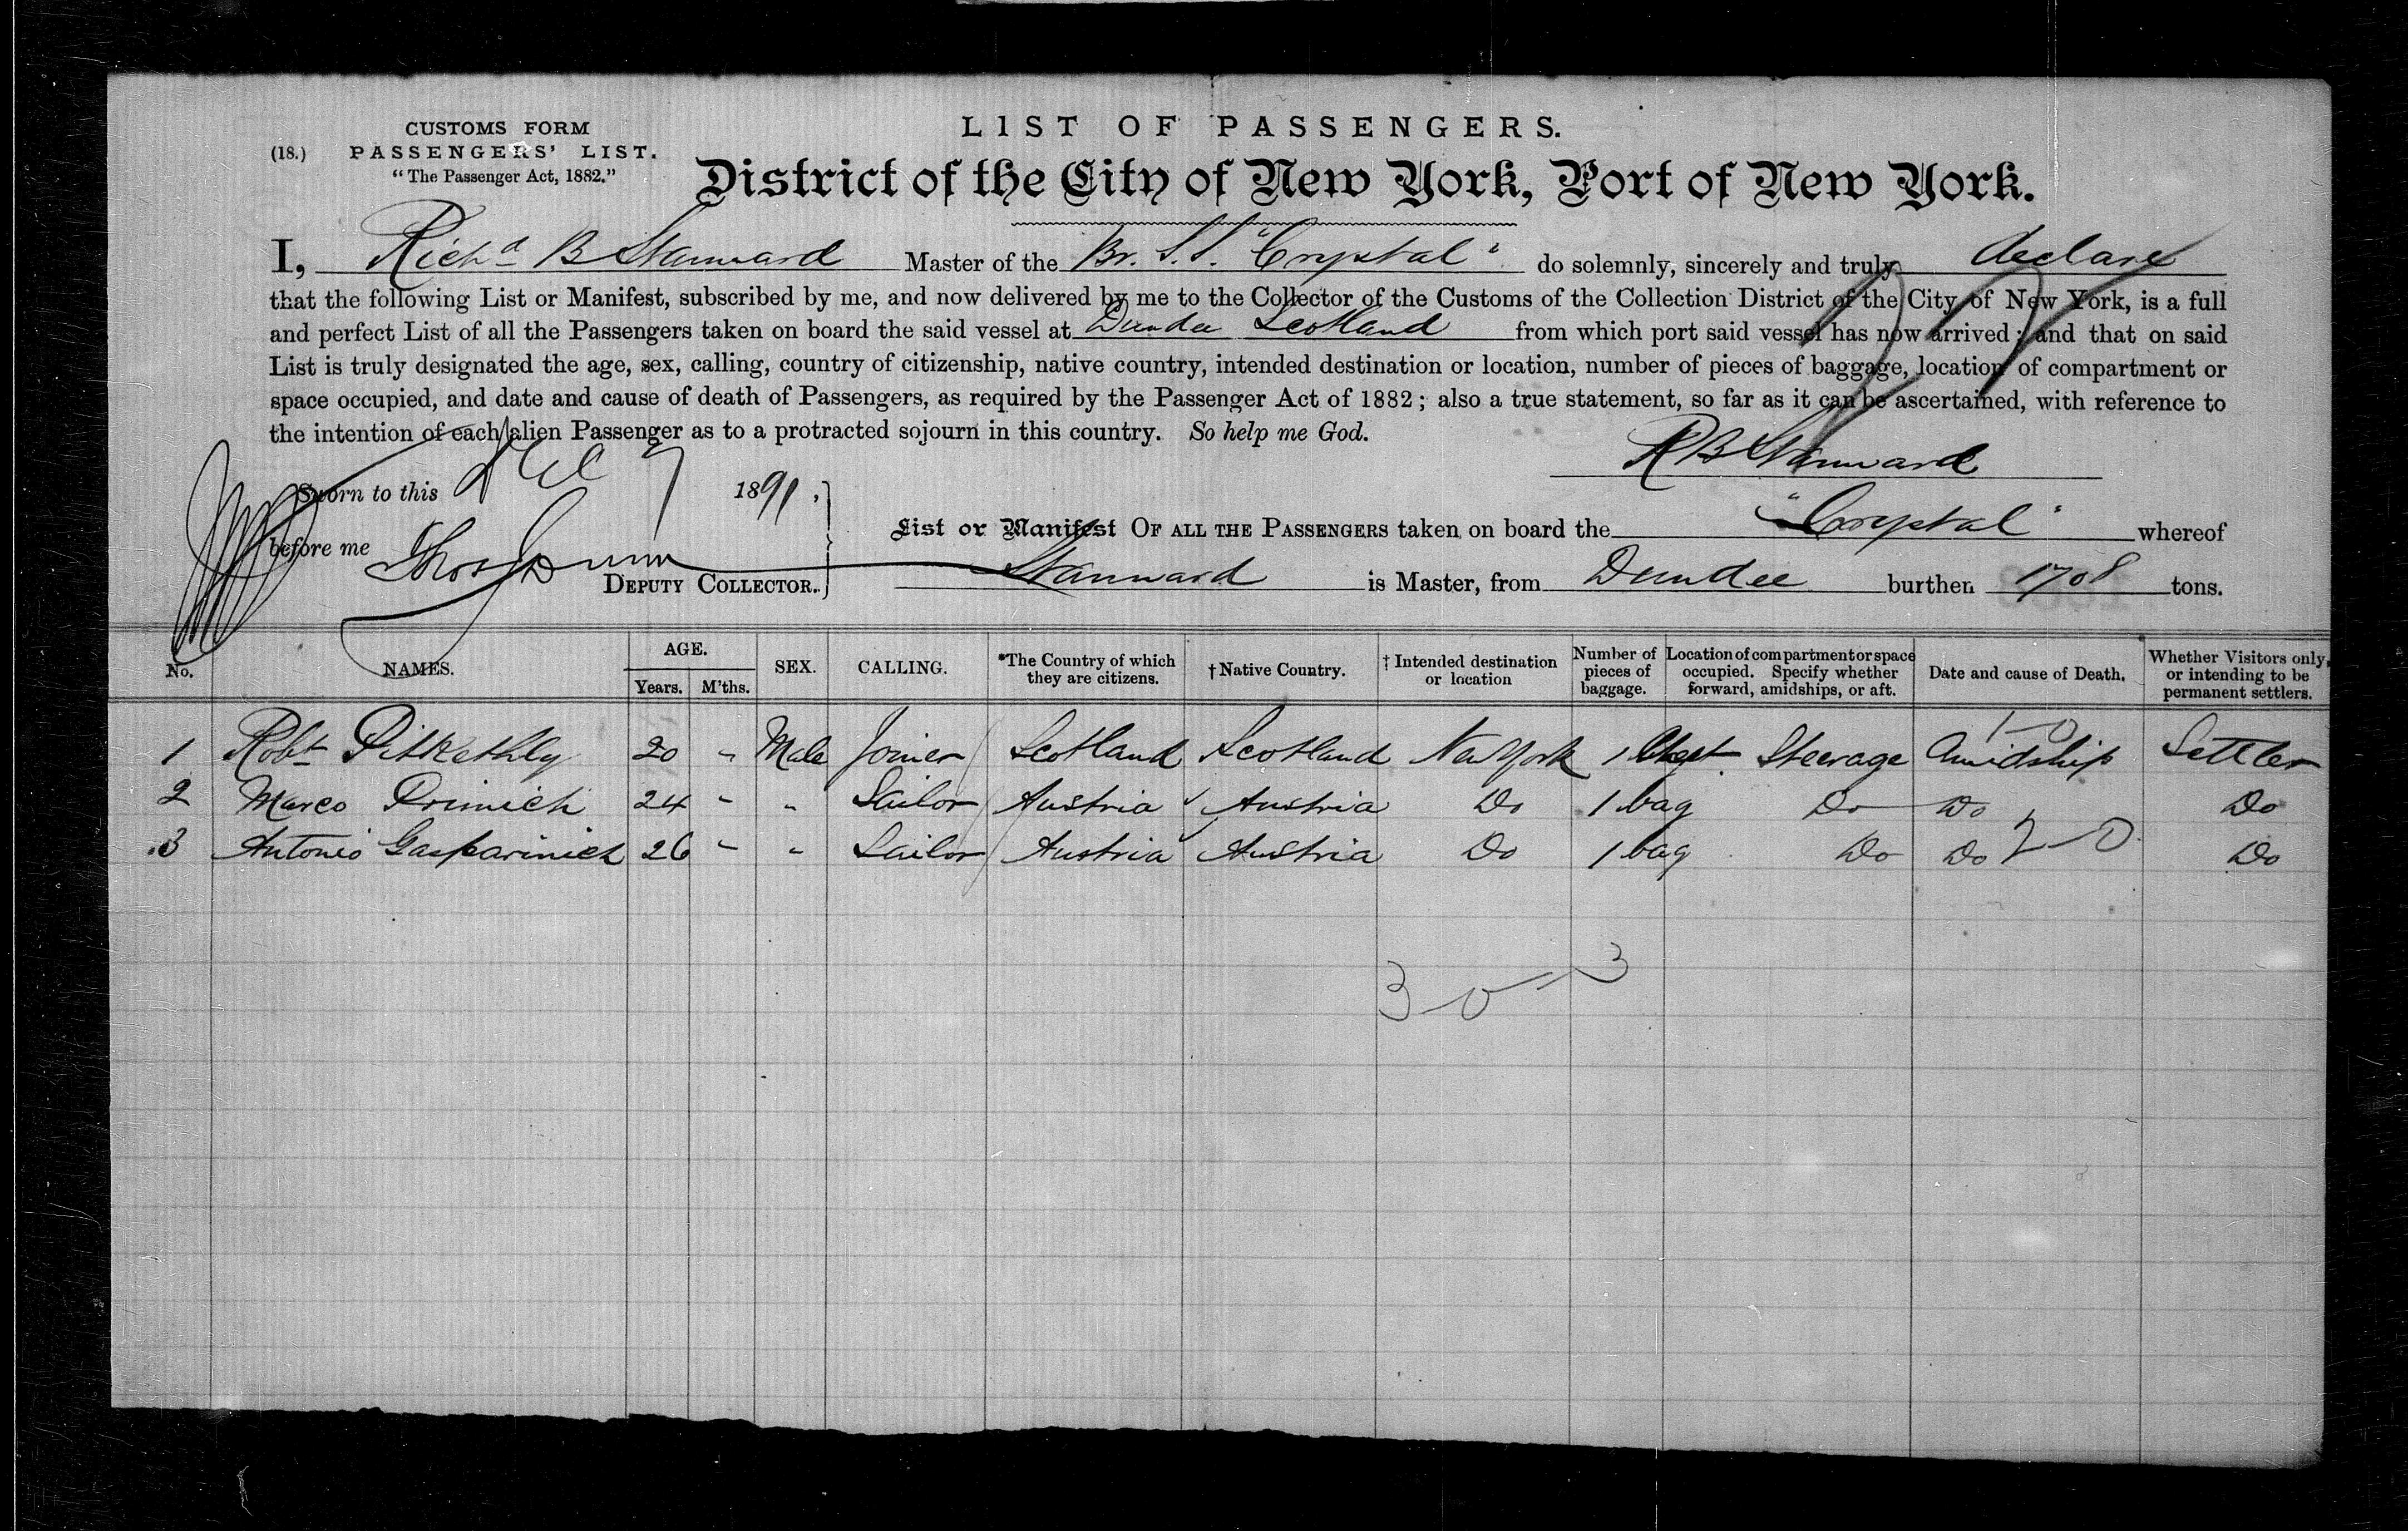 CUSTOMS FORM
(18.) PASSENGERS' LIST.
"The Passenger Act, 1882."
LIST OF PASSENGERS.
District of the City of New York, Port of New York.
I, Richd B Stannard Master of the Br. S.S. "Crystal" do solemnly, sincerely and truly declare
that the following List or Manifest, subscribed by me, and now delivered by me to the Collector of the Customs of the Collection District of the City of New York, is a full
and perfect List of all the Passengers taken on board the said vessel at Dundee Scotland from which port said vessel has now arrived; and that on said
List is truly designated the age, sex, calling, country of citizenship, native country, intended destination or location, number of pieces of baggage, location of compartment or
space occupied, and date and cause of death of Passengers, as required by the Passenger Act of 1882; also a true statement, so far as it can be ascertained, with reference to
the intention of each alien Passenger as to a protracted sojourn in this country. So help me God.
R B Stannard
Sworn to this Dec 7 1891,
before me Thos Dunn
DEPUTY COLLECTOR.
List or Manifest OF ALL THE PASSENGERS taken on board the "Crystal" whereof
Stannard is Master, from Dundee burthen 1708 tons.
No. NAMES. AGE. Years. M'ths. SEX. CALLING. *The Country of which they are citizens. †Native Country. †Intended destination or location Number of pieces of baggage. Location of compartment or space occupied. Specify whether forward, amidships, or aft. Date and cause of Death. Whether Visitors only, or intending to be permanent settlers.
1-0
1 Robt Pitkethly 20 " Male Joiner Scotland Scotland New York 1 Chest Steerage Amidship Settler
2 Marco Primich 24 " " Sailor Austria Austria Do 1 bag Do Do Do
3 Antonio Gasparinich 26 " " Sailor Austria Austria Do 1 bag Do Do 2-0 Do
3 0 - 3